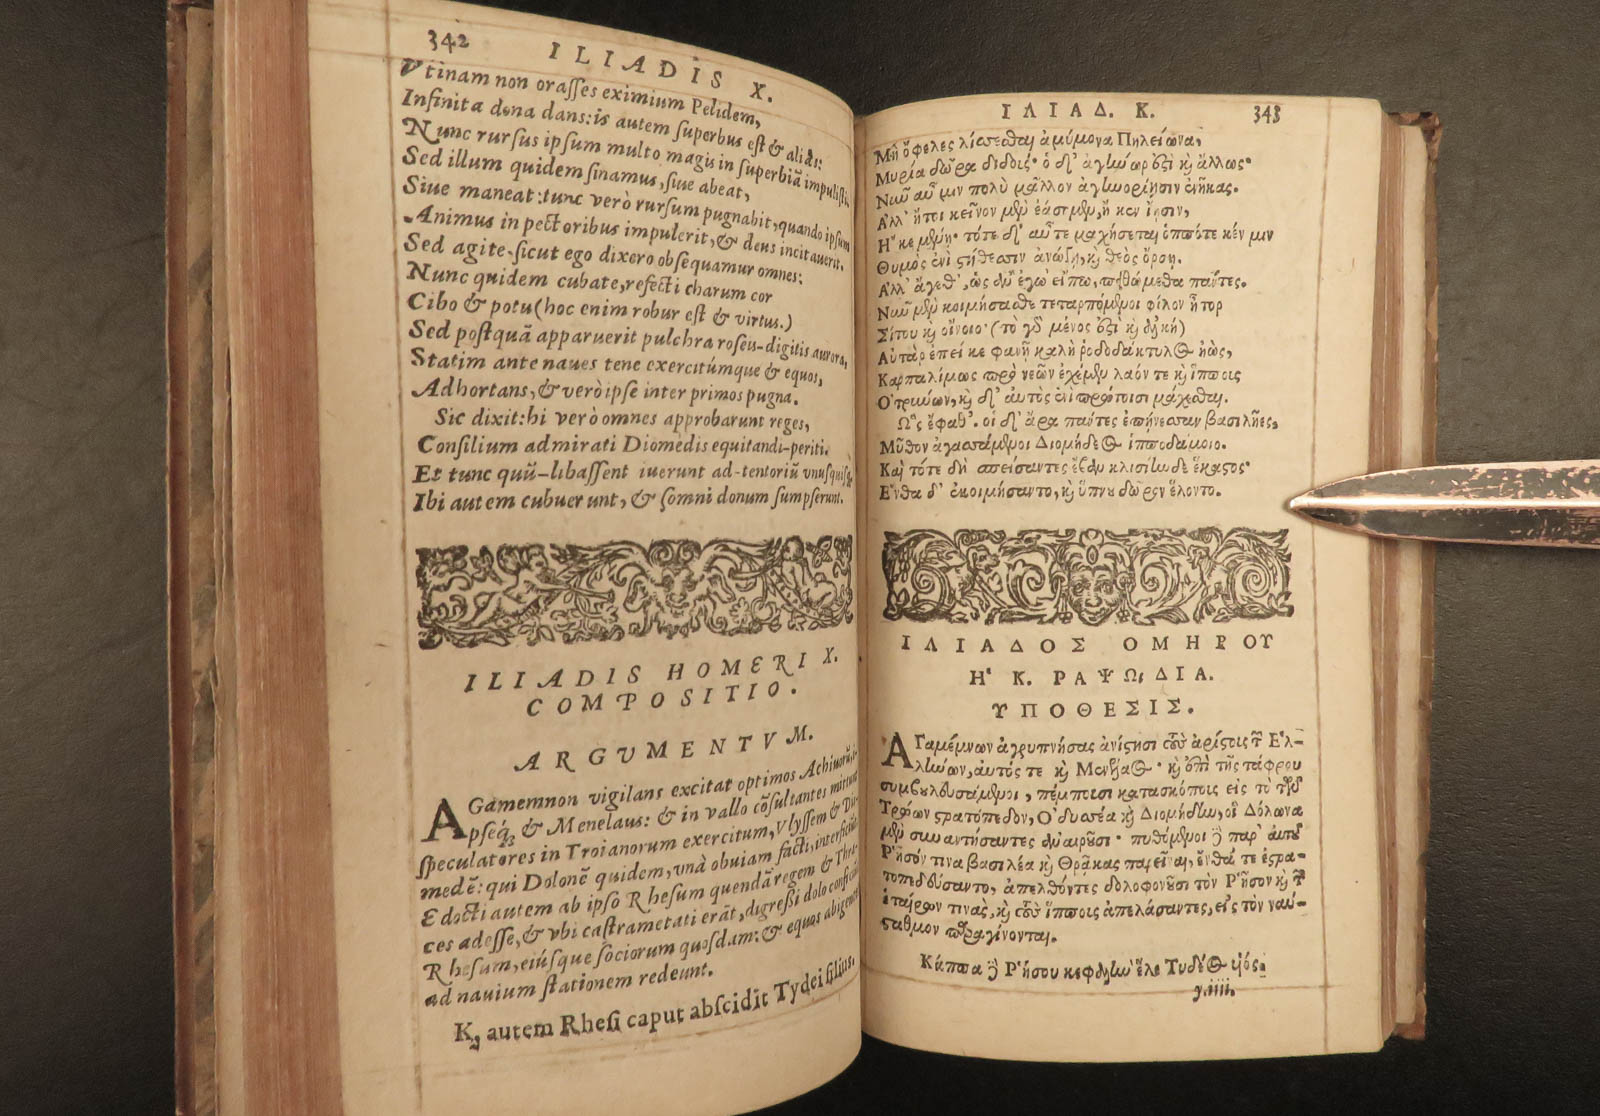 342
ILIADIS X.
Vtinam non orasses eximium Pelidem,
Infinita dona dans: is autem superbus est & aliàs:
Nunc rursus ipsum multo magis in superbiā impulisti.
Sed illum quidem sinamus, siue abeat,
Siue maneat: tunc verò rursum pugnabit, quando ipsum
Animus in pectoribus impulerit, & deus incitauerit.
Sed agite-sicut ego dixero obsequamur omnes:
Nunc quidem cubate, refecti charum cor
Cibo & potu (hoc enim robur est & virtus.)
Sed postquā apparuerit pulchra roseu-digitis aurora,
Statim ante naues tene exercitúmque & equos,
Adhortans, & verò ipse inter primos pugna.
Sic dixit: hi verò omnes approbarunt reges,
Consilium admirati Diomedis equitandi-periti.
Et tunc quū-libassent iuerunt ad-tentoriū vnusquisque
Ibi autem cubuerunt, & somni donum sumpserunt.
ILIADIS HOMERI X.
COMPOSITIO.
ARGVMENTVM.
AGamemnon vigilans excitat optimos Achiuorū,
ipseq́; & Menelaus: & in vallo cōsultantes mittunt
speculatores in Troianorum exercitum, Vlyssem & Dio-
medē: qui Dolonē quidem, vnà obuiam facti, interficiūt
Edocti autem ab ipso Rhesum quendā regem & Thra-
ces adesse, & vbi castrametati erāt, digressi dolo conficiūt
Rhesum, eiúsque sociorum quosdam: & equos abigentes
ad nauium stationem redeunt.
K, autem Rhesi caput abscidit Tydei filius.
ΙΛΙΑΔ. Κ.
343
Μὴ ὄφελες λίσσεσθαι ἀμύμονα Πηλείωνα,
Μυρία δῶρα διδούς· ὁ δ' ἀγήνωρ ἐστὶ καὶ ἄλλως·
Νῦν αὖ μιν πολὺ μᾶλλον ἀγηνορίῃσιν ἐνῆκας.
Ἀλλ' ἤτοι κεῖνον μὲν ἐάσομεν, ἤ κεν ἴῃσιν,
Ἤ κε μένῃ· τότε δ' αὖτε μαχήσεται ὁππότε κέν μιν
Θυμὸς ἐνὶ στήθεσσιν ἀνώγῃ, καὶ θεὸς ὄρσῃ.
Ἀλλ' ἄγεθ', ὡς δὴ ἐγὼ εἴπω, πειθώμεθα πάντες.
Νῦν μὲν κοιμήσασθε τεταρπόμενοι φίλον ἦτορ
Σίτου καὶ οἴνοιο· (τὸ γὰρ μένος ἐστὶ καὶ ἀλκή)
Αὐτὰρ ἐπεί κε φανῇ καλὴ ῥοδοδάκτυλος ἠώς,
Καρπαλίμως πρὸ νεῶν ἐχέμεν λαόν τε καὶ ἵππους
Ὀτρύνων, καὶ δ' αὐτὸς ἐνὶ πρώτοισι μάχεσθαι.
Ὣς ἔφαθ'. οἱ δ' ἄρα πάντες ἐπῄνεσαν βασιλῆες,
Μῦθον ἀγασσάμενοι Διομήδεος ἱπποδάμοιο.
Καὶ τότε δὴ σπείσαντες ἔβαν κλισίηνδε ἕκαστος·
Ἔνθα δ' ἐκοιμήσαντο, καὶ ὕπνου δῶρον ἕλοντο.
ΙΛΙΑΔΟΣ ΟΜΗΡΟΥ
Ἡ Κ. ΡΑΨΩΔΙΑ.
ΥΠΟΘΕΣΙΣ.
ΑΓαμέμνων ἀγρυπνήσας ἀνίστησι τοὺς ἀρίστους τῶν Ἑλ-
λήνων, αὐτός τε καὶ Μενέλαος· καὶ ἐπὶ τῆς τάφρου
συμβουλευσάμενοι, πέμπουσι κατασκόπους εἰς τὸ τῶν
Τρώων στρατόπεδον, Ὀδυσσέα καὶ Διομήδην, οἳ Δόλωνα
μὲν συναντήσαντες ἀναιροῦσι· πυθόμενοι δὲ παρ' αὐτοῦ
Ῥῆσόν τινα βασιλέα καὶ Θρᾷκας παρεῖναι, ἔνθα τε ἐστρα-
τοπεδεύσαντο, ἀπελθόντες δολοφονοῦσι τὸν Ῥῆσον καὶ τῶν
ἑταίρων τινὰς, καὶ τοὺς ἵππους ἀπελάσαντες, εἰς τὸν ναύ-
σταθμον παραγίνονται.
Κάππα δὲ Ῥήσου κεφαλὴν ἕλε Τυδέος υἱός.
y.iiii.